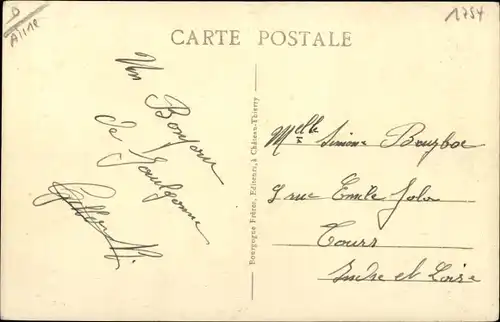 D
Aisne
1754
CARTE POSTALE
Un Bonjour
de
Bourgogne Frères, Editeurs, à Château-Thierry
Melle Simone
9 rue Emile Zola
Tours
Indre et Loire